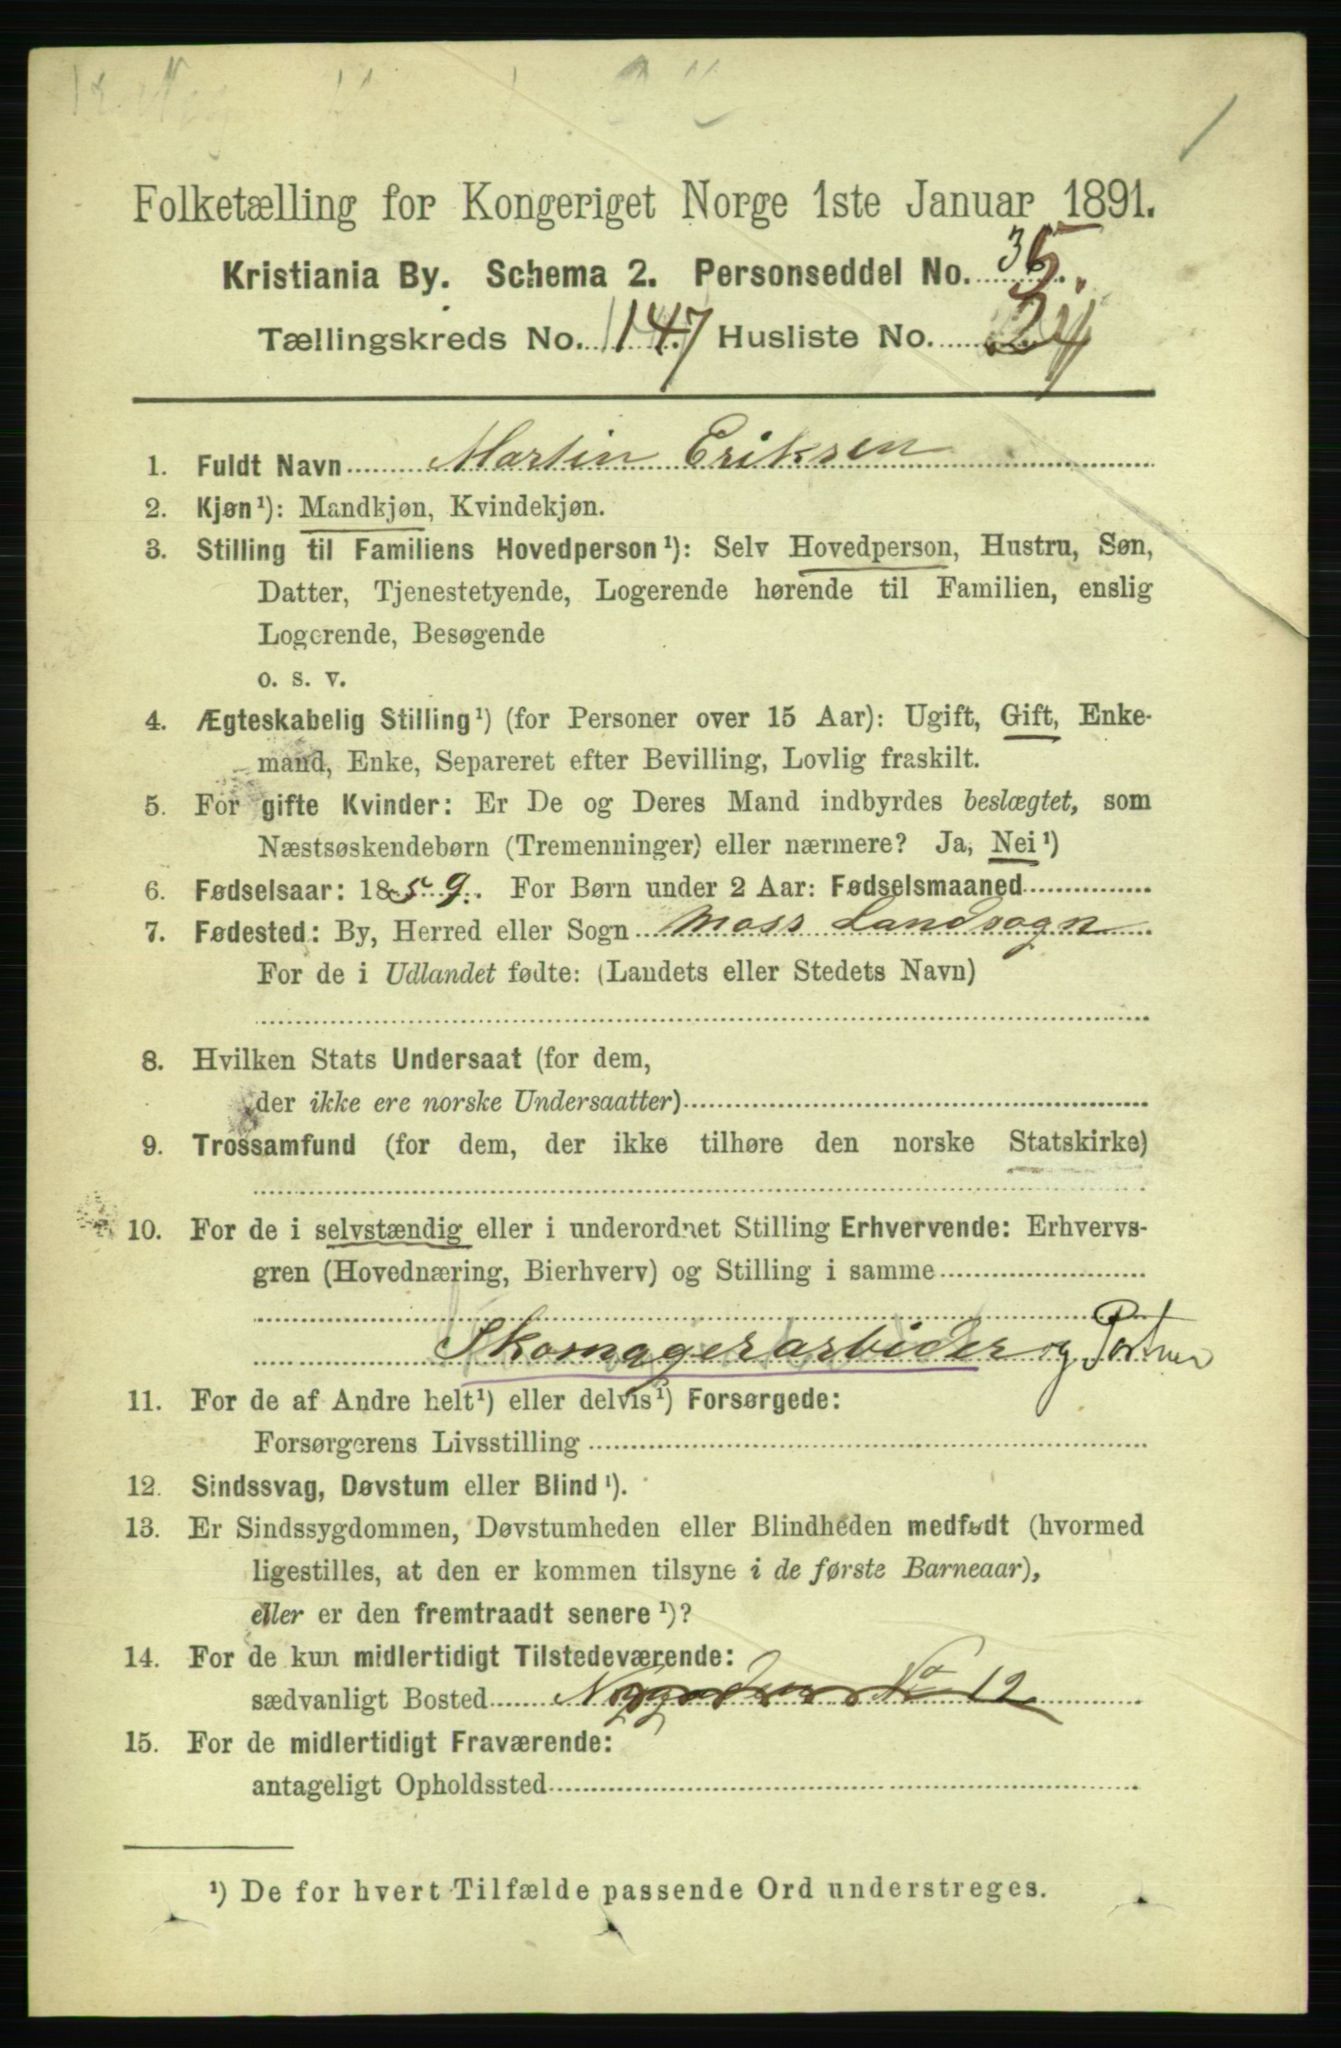 Folketælling for Kongeriget Norge 1ste Januar 1891.
Kristiania By. Schema 2. Personseddel No. 35.
Tællingskreds No. 147 Husliste No. 24
1. Fuldt Navn Martin Eriksen
2. Kjøn¹): Mandkjøn, Kvindekjøn.
3. Stilling til Familiens Hovedperson¹): Selv Hovedperson, Hustru, Søn,
Datter, Tjenestetyende, Logerende hørende til Familien, enslig
Logerende, Besøgende
o. s. v.
4. Ægteskabelig Stilling¹) (for Personer over 15 Aar): Ugift, Gift, Enke-
mand, Enke, Separeret efter Bevilling, Lovlig fraskilt.
5. For gifte Kvinder: Er De og Deres Mand indbyrdes beslægtet, som
Næstsøskendebørn (Tremenninger) eller nærmere? Ja, Nei¹)
6. Fødselsaar: 1859. For Børn under 2 Aar: Fødselsmaaned
7. Fødested: By, Herred eller Sogn Moss Landsogn
For de i Udlandet fødte: (Landets eller Stedets Navn)
8. Hvilken Stats Undersaat (for dem,
der ikke ere norske Undersaatter)
9. Trossamfund (for dem, der ikke tilhøre den norske Statskirke)
10. For de i selvstændig eller i underordnet Stilling Erhvervende: Erhvervs-
gren (Hovednæring, Bierhverv) og Stilling i samme
Skomagerarbider og Portner
11. For de af Andre helt¹) eller delvis¹) Forsørgede:
Forsørgerens Livsstilling
12. Sindssvag, Døvstum eller Blind¹).
13. Er Sindssygdommen, Døvstumheden eller Blindheden medfødt (hvormed
ligestilles, at den er kommen tilsyne i de første Barneaar),
eller er den fremtraadt senere¹)?
14. For de kun midlertidigt Tilstedeværende:
sædvanligt Bosted No 12
15. For de midlertidigt Fraværende:
antageligt Opholdssted
¹) De for hvert Tilfælde passende Ord understreges.